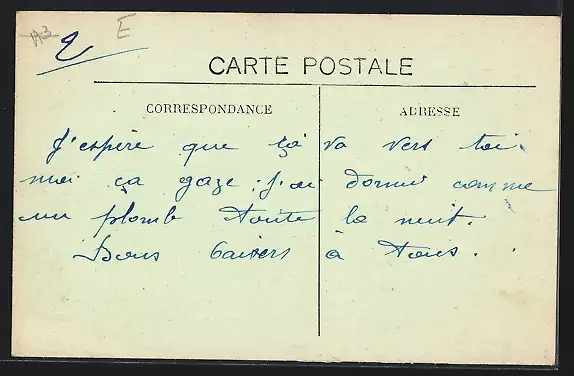 2 E
CARTE POSTALE
CORRESPONDANCE ADRESSE
J'espère que ça va vers toi.
moi ça gaze. j'ai dormi comme
un plomb toute la nuit.
Bons baisers à tous.